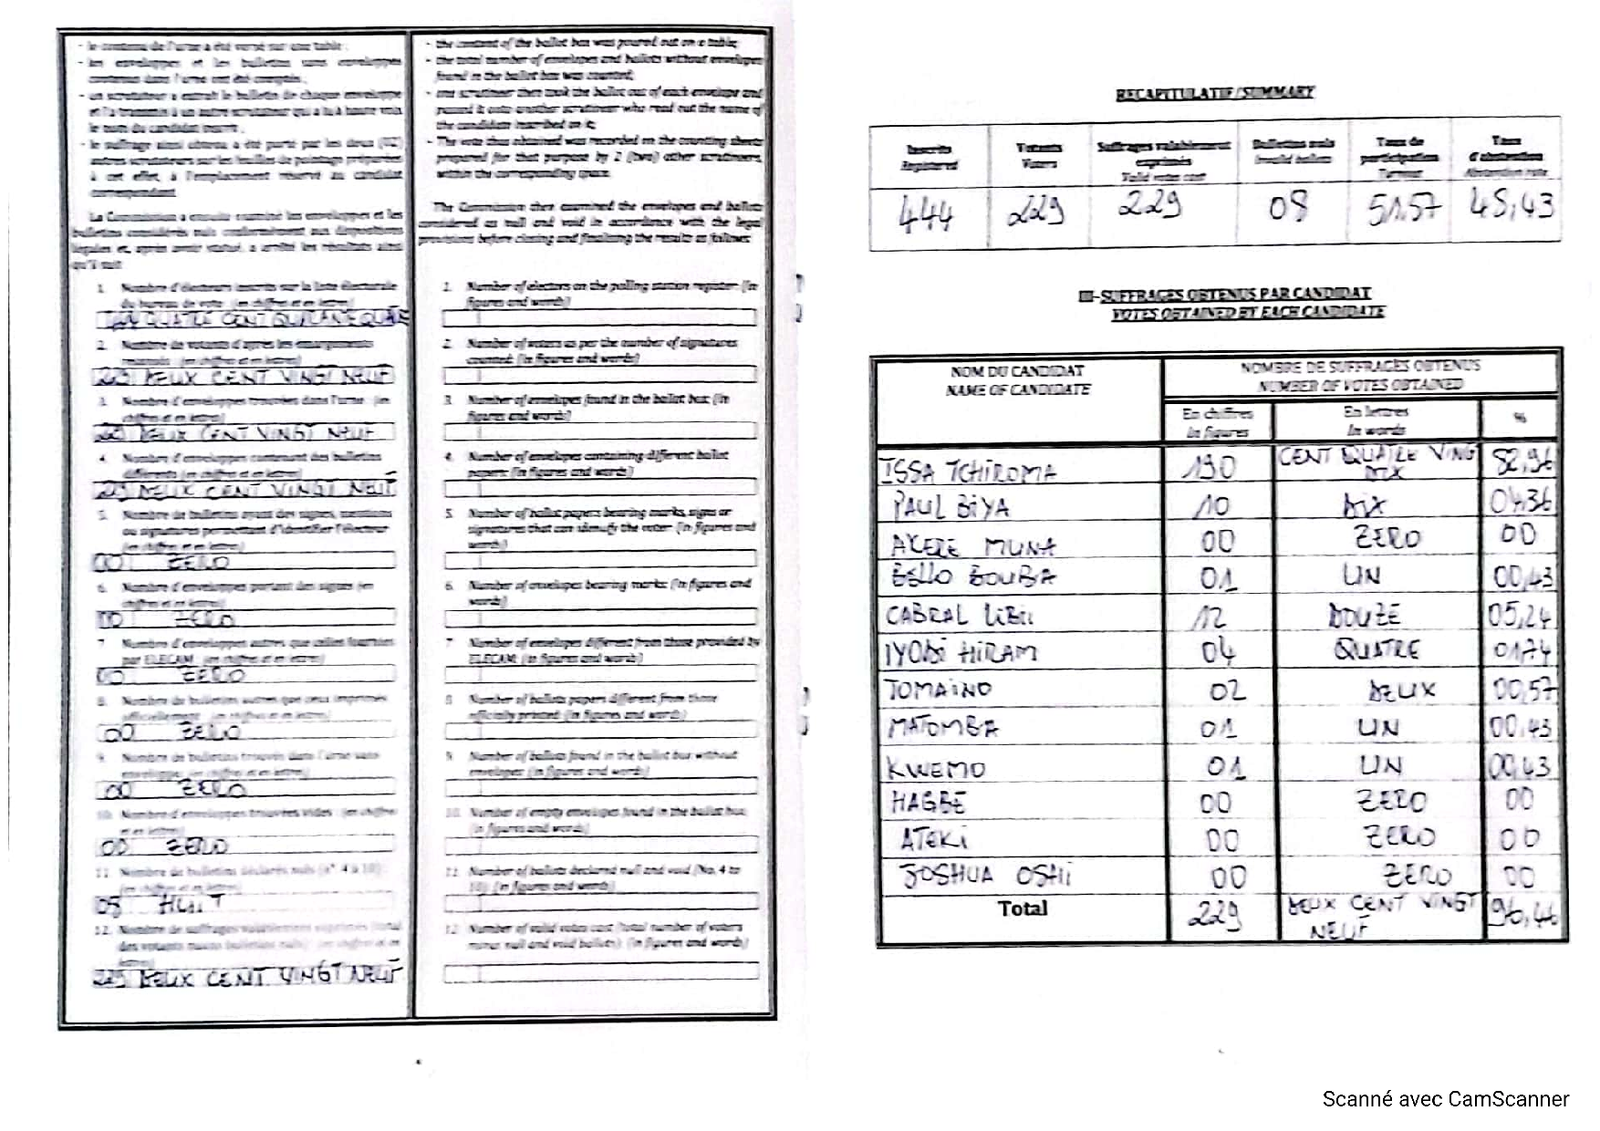 - le contenu de l'urne a été versé sur une table ;
- les enveloppes et les bulletins sans enveloppes
contenus dans l'urne ont été comptés ;
- un scrutateur a extrait le bulletin de chaque enveloppe
et l'a transmis à un autre scrutateur qui a lu à haute voix
le nom du candidat inscrit ;
- le suffrage ainsi obtenu a été porté par les deux (02)
autres scrutateurs sur les feuilles de pointage préparées
à cet effet, à l'emplacement réservé au candidat
correspondant.
La Commission a ensuite examiné les enveloppes et les
bulletins considérés nuls conformément aux dispositions
légales et, après avoir statué, a arrêté les résultats ainsi
qu'il suit:
1. Nombre d'électeurs inscrits sur la liste électorale
du bureau de vote: (en chiffres et en lettres)
444 QUATRE CENT QUARANTE QUATRE
2. Nombre de votants d'après les émargements
(en chiffres et en lettres)
229 DEUX CENT VINGT NEUF
3. Nombre d'enveloppes trouvées dans l'urne: (en
chiffres et en lettres)
229 DEUX CENT VINGT NEUF
4. Nombre d'enveloppes contenant des bulletins
différents: (en chiffres et en lettres)
229 DEUX CENT VINGT NEUF
5. Nombre de bulletins ayant des signes, mentions
ou signatures permettant d'identifier l'électeur
(en chiffres et en lettres)
00 ZERO
6. Nombre d'enveloppes portant des signes (en
chiffres et en lettres)
00 ZERO
7 Nombre d'enveloppes autres que celles fournies
par ELECAM: (en chiffres et en lettres)
00 ZERO
8. Nombre de bulletins autres que ceux imprimés
officiellement: (en chiffres et en lettres)
00 ZERO
9. Nombre de bulletins trouvés dans l'urne sans
enveloppe: (en chiffres et en lettres)
00 ZERO
10. Nombre d'enveloppes trouvées vides: (en chiffres
et en lettres)
00 ZERO
11. Nombre de bulletins déclarés nuls (n° 4 à 10):
(en chiffres et en lettres)
08 HUIT
12. Nombre de suffrages valablement exprimés (total
des votants moins bulletins nuls): (en chiffres et en
lettres)
229 DEUX CENT VINGT NEUF
- the content of the ballot box was poured out on a table;
- the total number of envelopes and ballots without envelopes
found in the ballot box was counted;
- one scrutineer then took the ballot out of each envelope and
passed it onto another scrutineer who read out the name of
the candidate inscribed on it;
- The vote thus obtained was recorded on the counting sheets
prepared for that purpose by 2 (two) other scrutineers,
within the corresponding space.
The Commission then examined the envelopes and ballots
considered as null and void in accordance with the legal
provisions before closing and finalizing the results as follows:
1. Number of electors on the polling station register: (in
figures and words)
2. Number of voters as per the number of signatures
counted: (in figures and words)
3. Number of envelopes found in the ballot box: (in
figures and words)
4. Number of envelopes containing different ballot
papers: (in figures and words)
5. Number of ballot papers bearing marks, signs or
signatures that can identify the voter: (in figures and
words)
6. Number of envelopes bearing marks: (in figures and
words)
7 Number of envelopes different from those provided by
ELECAM: (in figures and words)
8 Number of ballots papers different from those
officially printed: (in figures and words)
9. Number of ballots found in the ballot box without
envelopes: (in figures and words)
10. Number of empty envelopes found in the ballot box:
(in figures and words)
11. Number of ballots declared null and void (No. 4 to
10): (in figures and words)
12. Number of valid votes cast (total number of voters
minus null and void ballots): (in figures and words)
RECAPITULATIF/SUMMARY
Inscrits
Registered
Votants
Voters
Suffrages valablement
exprimés
Valid votes cast
Bulletins nuls
Invalid ballots
Taux de
participation
Turnout
Taux
d'abstention
Abstention rate
444 229 229 08 51,57 48,43
III-SUFFRAGES OBTENUS PAR CANDIDAT
VOTES OBTAINED BY EACH CANDIDATE
NOM DU CANDIDAT
NAME OF CANDIDATE
NOMBRE DE SUFFRAGES OBTENUS
NUMBER OF VOTES OBTAINED
En chiffres
In figures
En lettres
In words
%
ISSA TCHIROMA 190 CENT QUATRE VING DIX 82,96
PAUL BIYA 10 DIX 04,36
AKERE MUNA 00 ZERO 00
BELLO BOUBA 01 UN 00,43
CABRAL LIBII 12 DOUZE 05,24
IYODI HIRAM 04 QUATRE 01,74
TOMAINO 02 DEUX 00,57
MATOMBA 01 UN 00,43
KWEMO 01 UN 00,43
HAGBE 00 ZERO 00
ATEKI 00 ZERO 00
JOSHUA OSHI 00 ZERO 00
Total 229 DEUX CENT VINGT NEUF 96,46
Scanné avec CamScanner